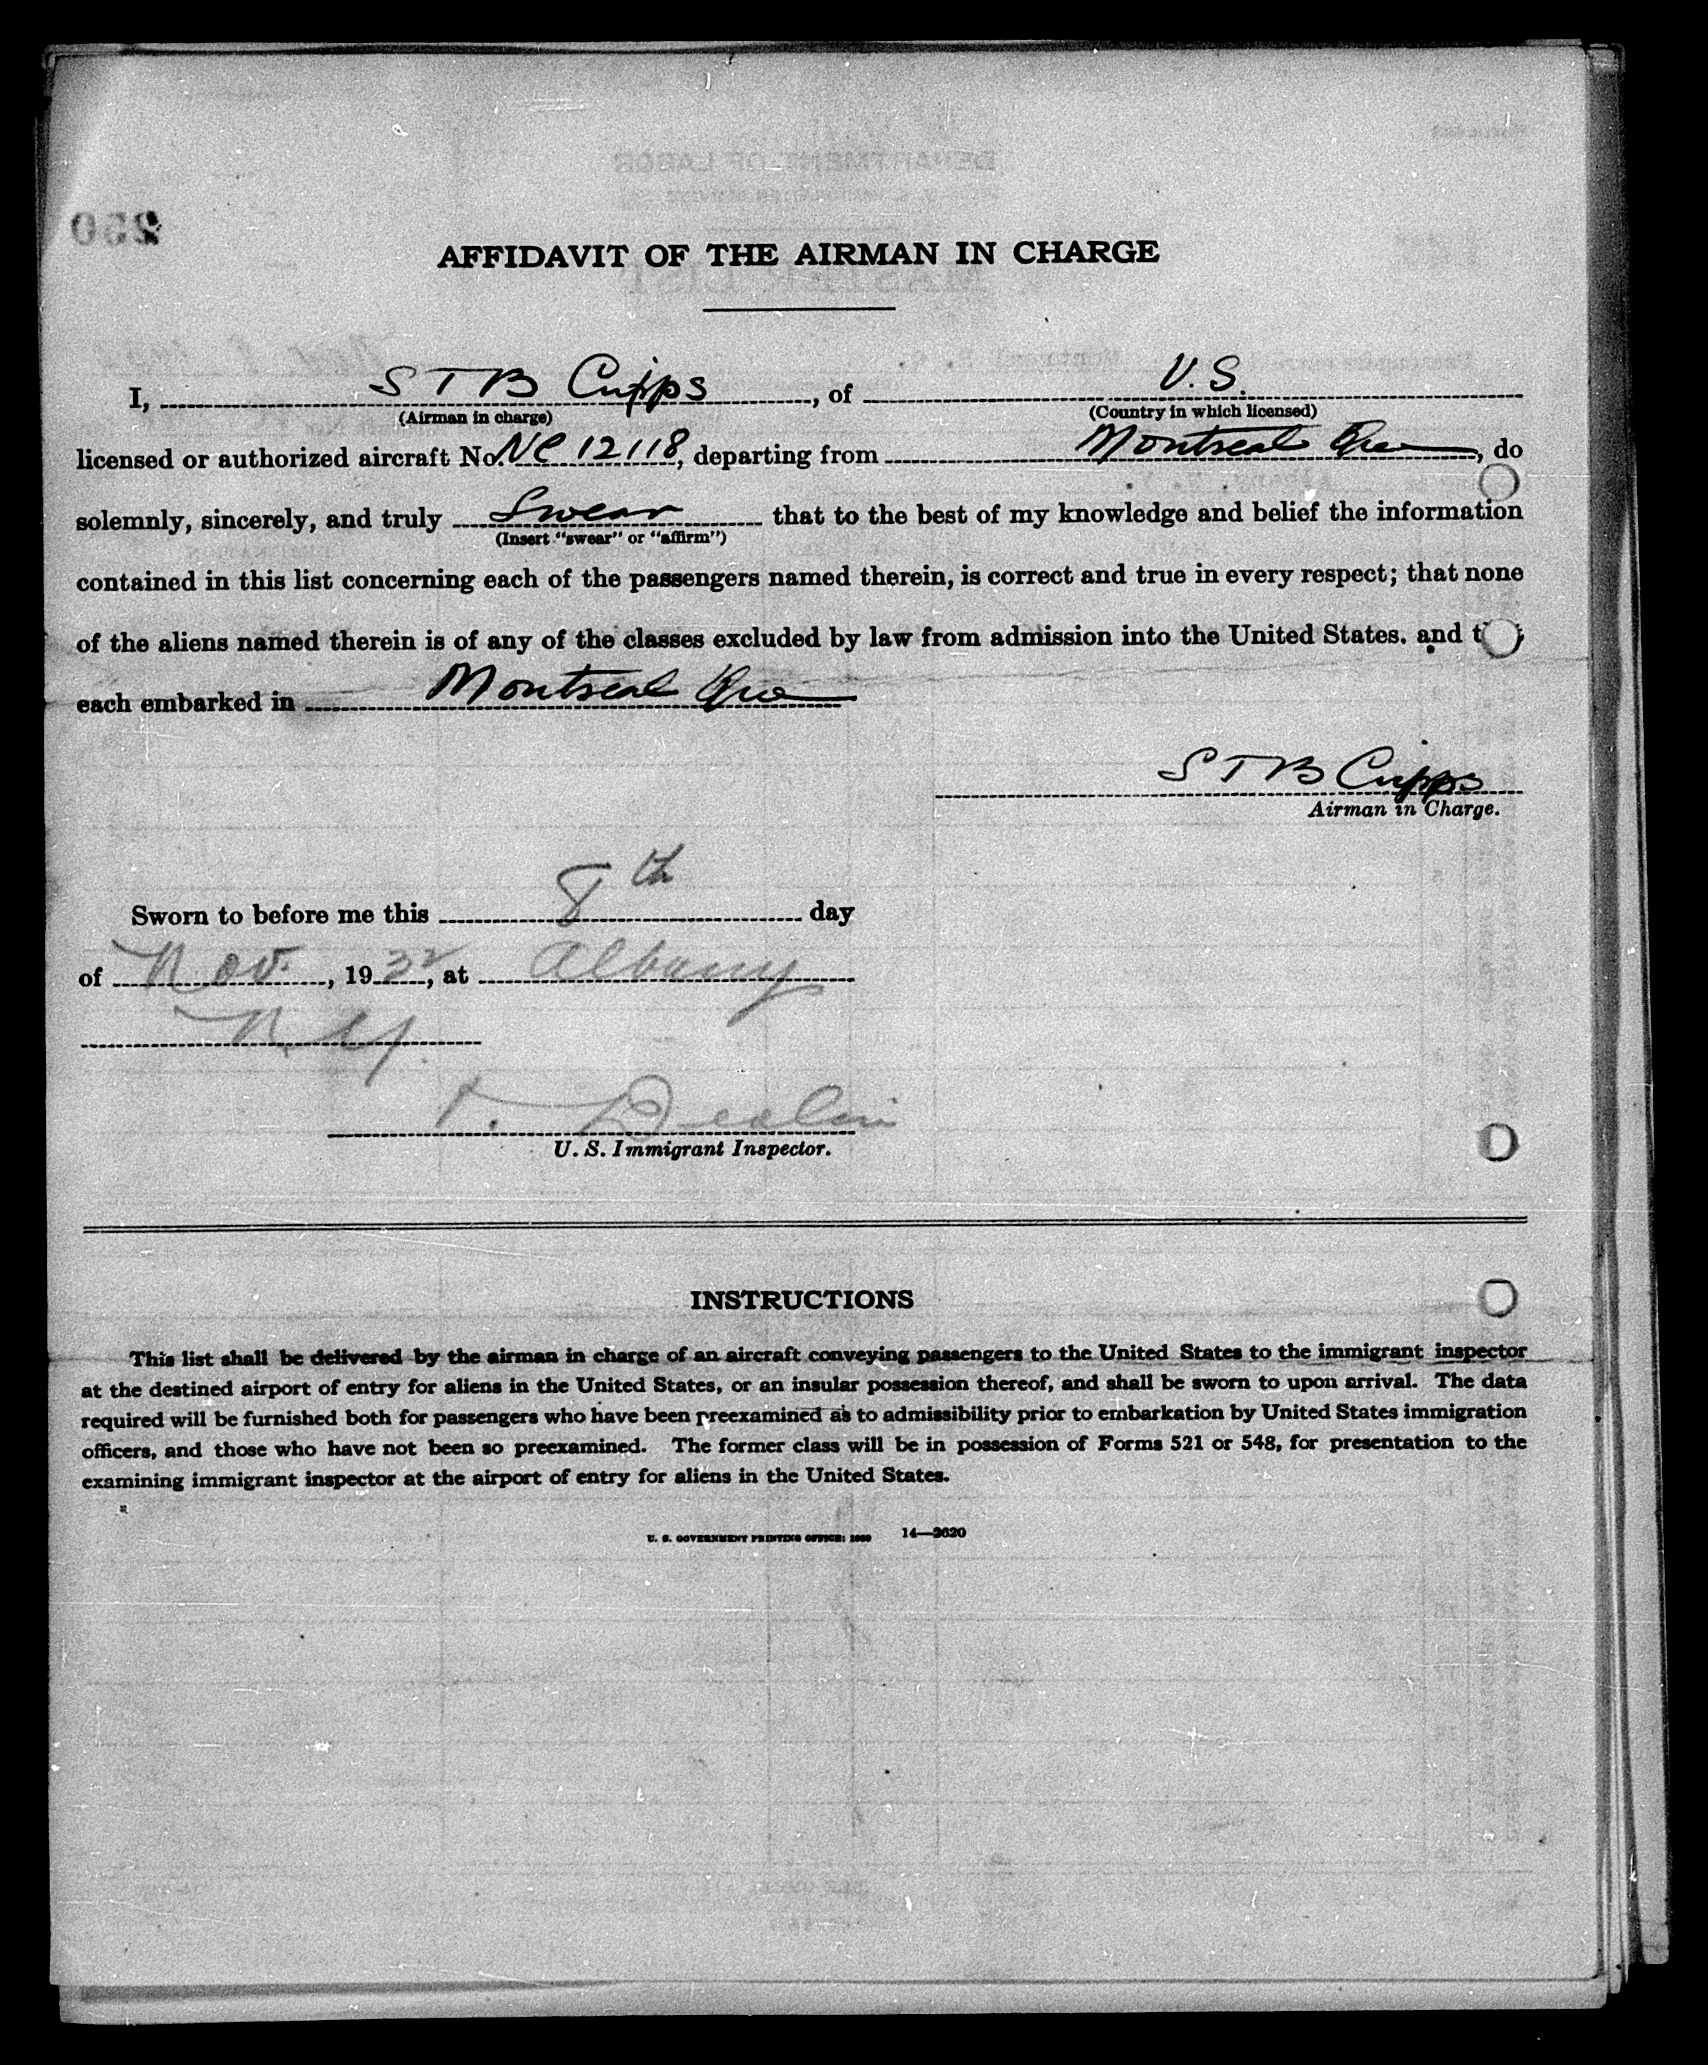 AFFIDAVIT OF THE AIRMAN IN CHARGE
I, S T B Cripps, of U.S.
(Airman in charge) (Country in which licensed)
licensed or authorized aircraft No. NC 12118, departing from Montreal Que, do
solemnly, sincerely, and truly Swear that to the best of my knowledge and belief the information
(Insert "swear" or "affirm")
contained in this list concerning each of the passengers named therein, is correct and true in every respect; that none
of the aliens named therein is of any of the classes excluded by law from admission into the United States, and
each embarked in Montreal Que
S T B Cripps
Airman in Charge.
8th
Sworn to before me this day
of Nov., 1932, at Albany
N.Y.
U. S. Immigrant Inspector.
INSTRUCTIONS
This list shall be delivered by the airman in charge of an aircraft conveying passengers to the United States to the immigrant inspector
at the destined airport of entry for aliens in the United States, or an insular possession thereof, and shall be sworn to upon arrival. The data
required will be furnished both for passengers who have been preexamined as to admissibility prior to embarkation by United States immigration
officers, and those who have not been so preexamined. The former class will be in possession of Forms 521 or 548, for presentation to the
examining immigrant inspector at the airport of entry for aliens in the United States.
U. S. GOVERNMENT PRINTING OFFICE: 14—3620